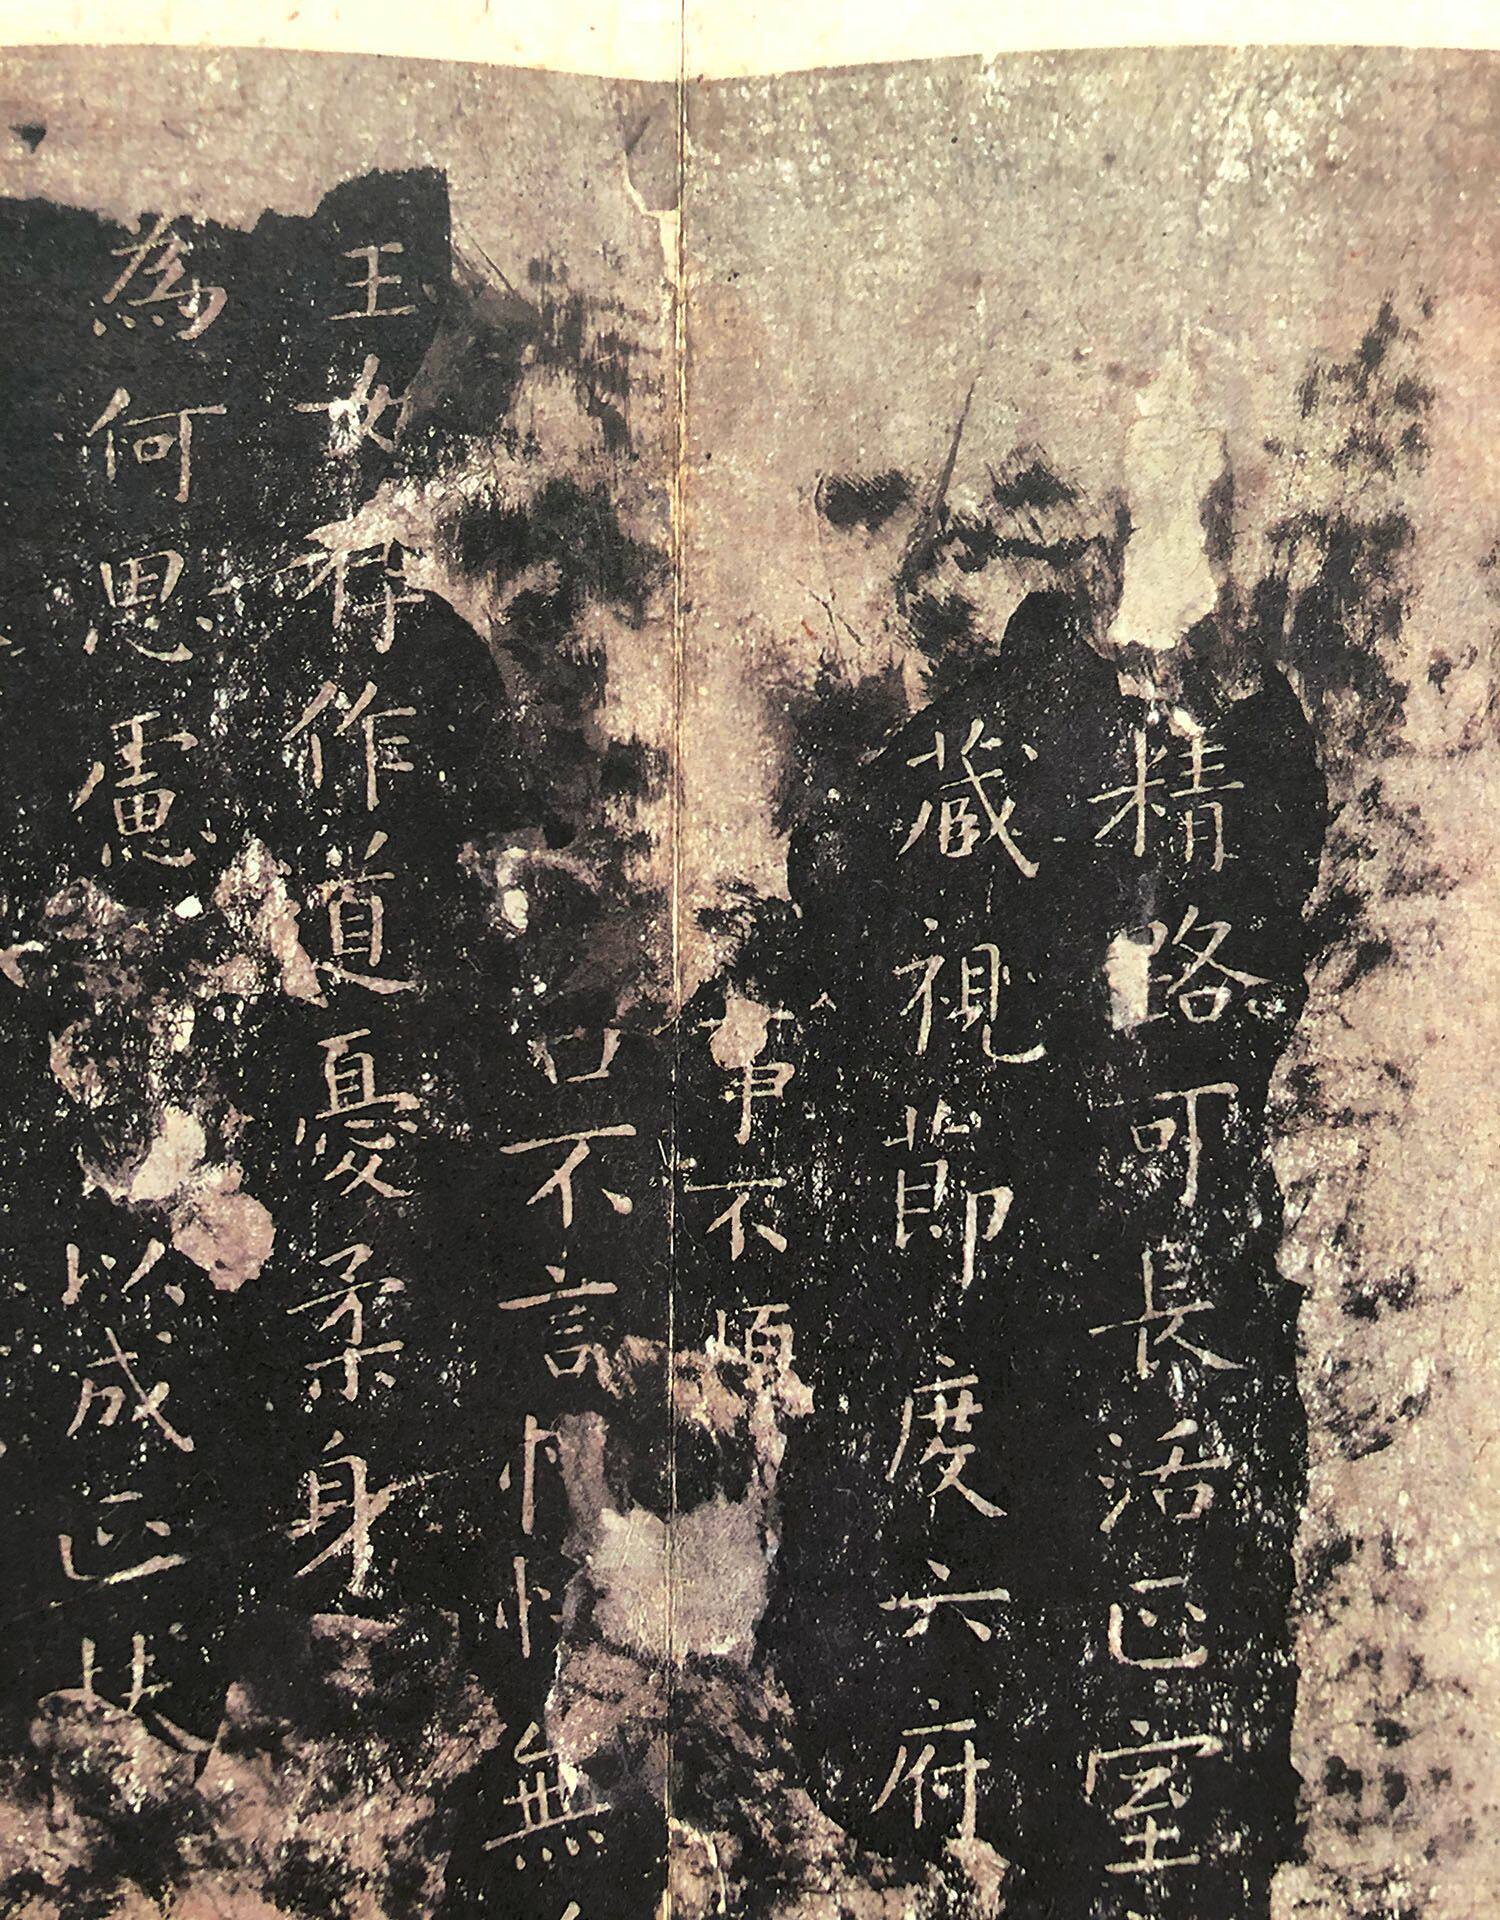 精路可長活正室
藏視莭度六府
事不煩
口不言無
玉女存作道憂柔身
為何思慮以成正